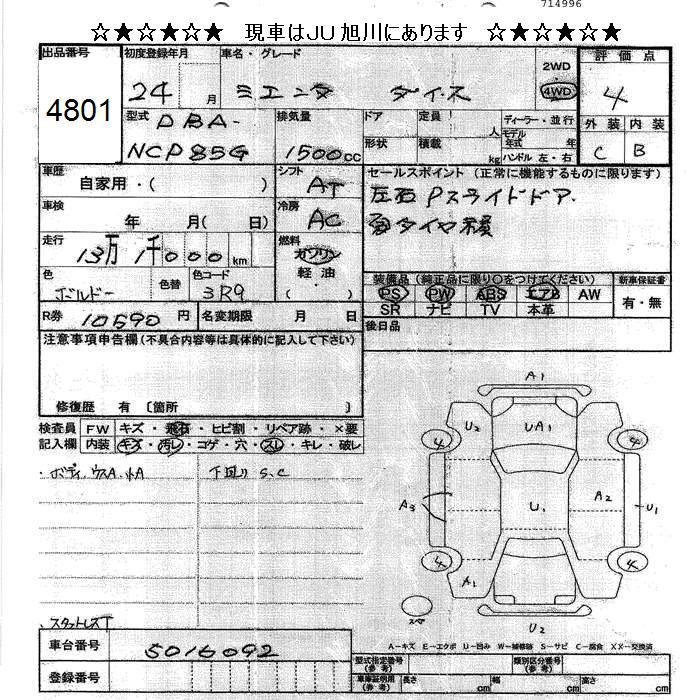 714996
☆★☆★☆★ 現車はJU旭川にあります ☆★☆★☆★
出品番号 初度登録年月 車名・グレード 2WD 4WD 評価点
4801 24 月 ミエンタ ダイス 4
型式 排気量 ドア 定員 人 ディーラー・並行 外装 内装
DBA-
NCP85G 1500cc 形状 積載 kg モデル年式 年 ハンドル 左・右 C B
車歴 シフト セールスポイント (正常に機能するものに限ります)
自家用・( ) AT 左右Pスライドドア.
車検 冷房
年 月( 日) AC 夏タイヤ積
走行 燃料
13万1千000km ガソリン
軽油・
( )
色 色替 色コード 装備品 (純正品に限り○をつけてください) 新車保証書
ボルドー 3R9 PS PW ABS エアB AW 有・無
SR ナビ TV 本革
R券 10590円 名変期限 月 日 後日品
注意事項申告欄(不具合内容等は具体的に記入して下さい)
修復歴 有 〔箇所 〕
検査員 FW キズ・飛石・ヒビ割・リペア跡・×要
記入欄 内装 キズ・汚レ・コゲ・穴・スレ・キレ・破レ
・ボディ ウスA.小A 下回り S.C
A1
U2 UA1
4 4
A3 U1 A2 U1
4 4
A1
スペア
U2
スタットレスT
A-キズ E-エクボ U-凹み W-補修跡 S-サビ C-腐食 XX-交換済
車台番号 5016092
登録番号
型式指定番号(参考) 類別区分番号(参考)
車庫証明用(参考) 長さ cm 幅 cm 高さ cm